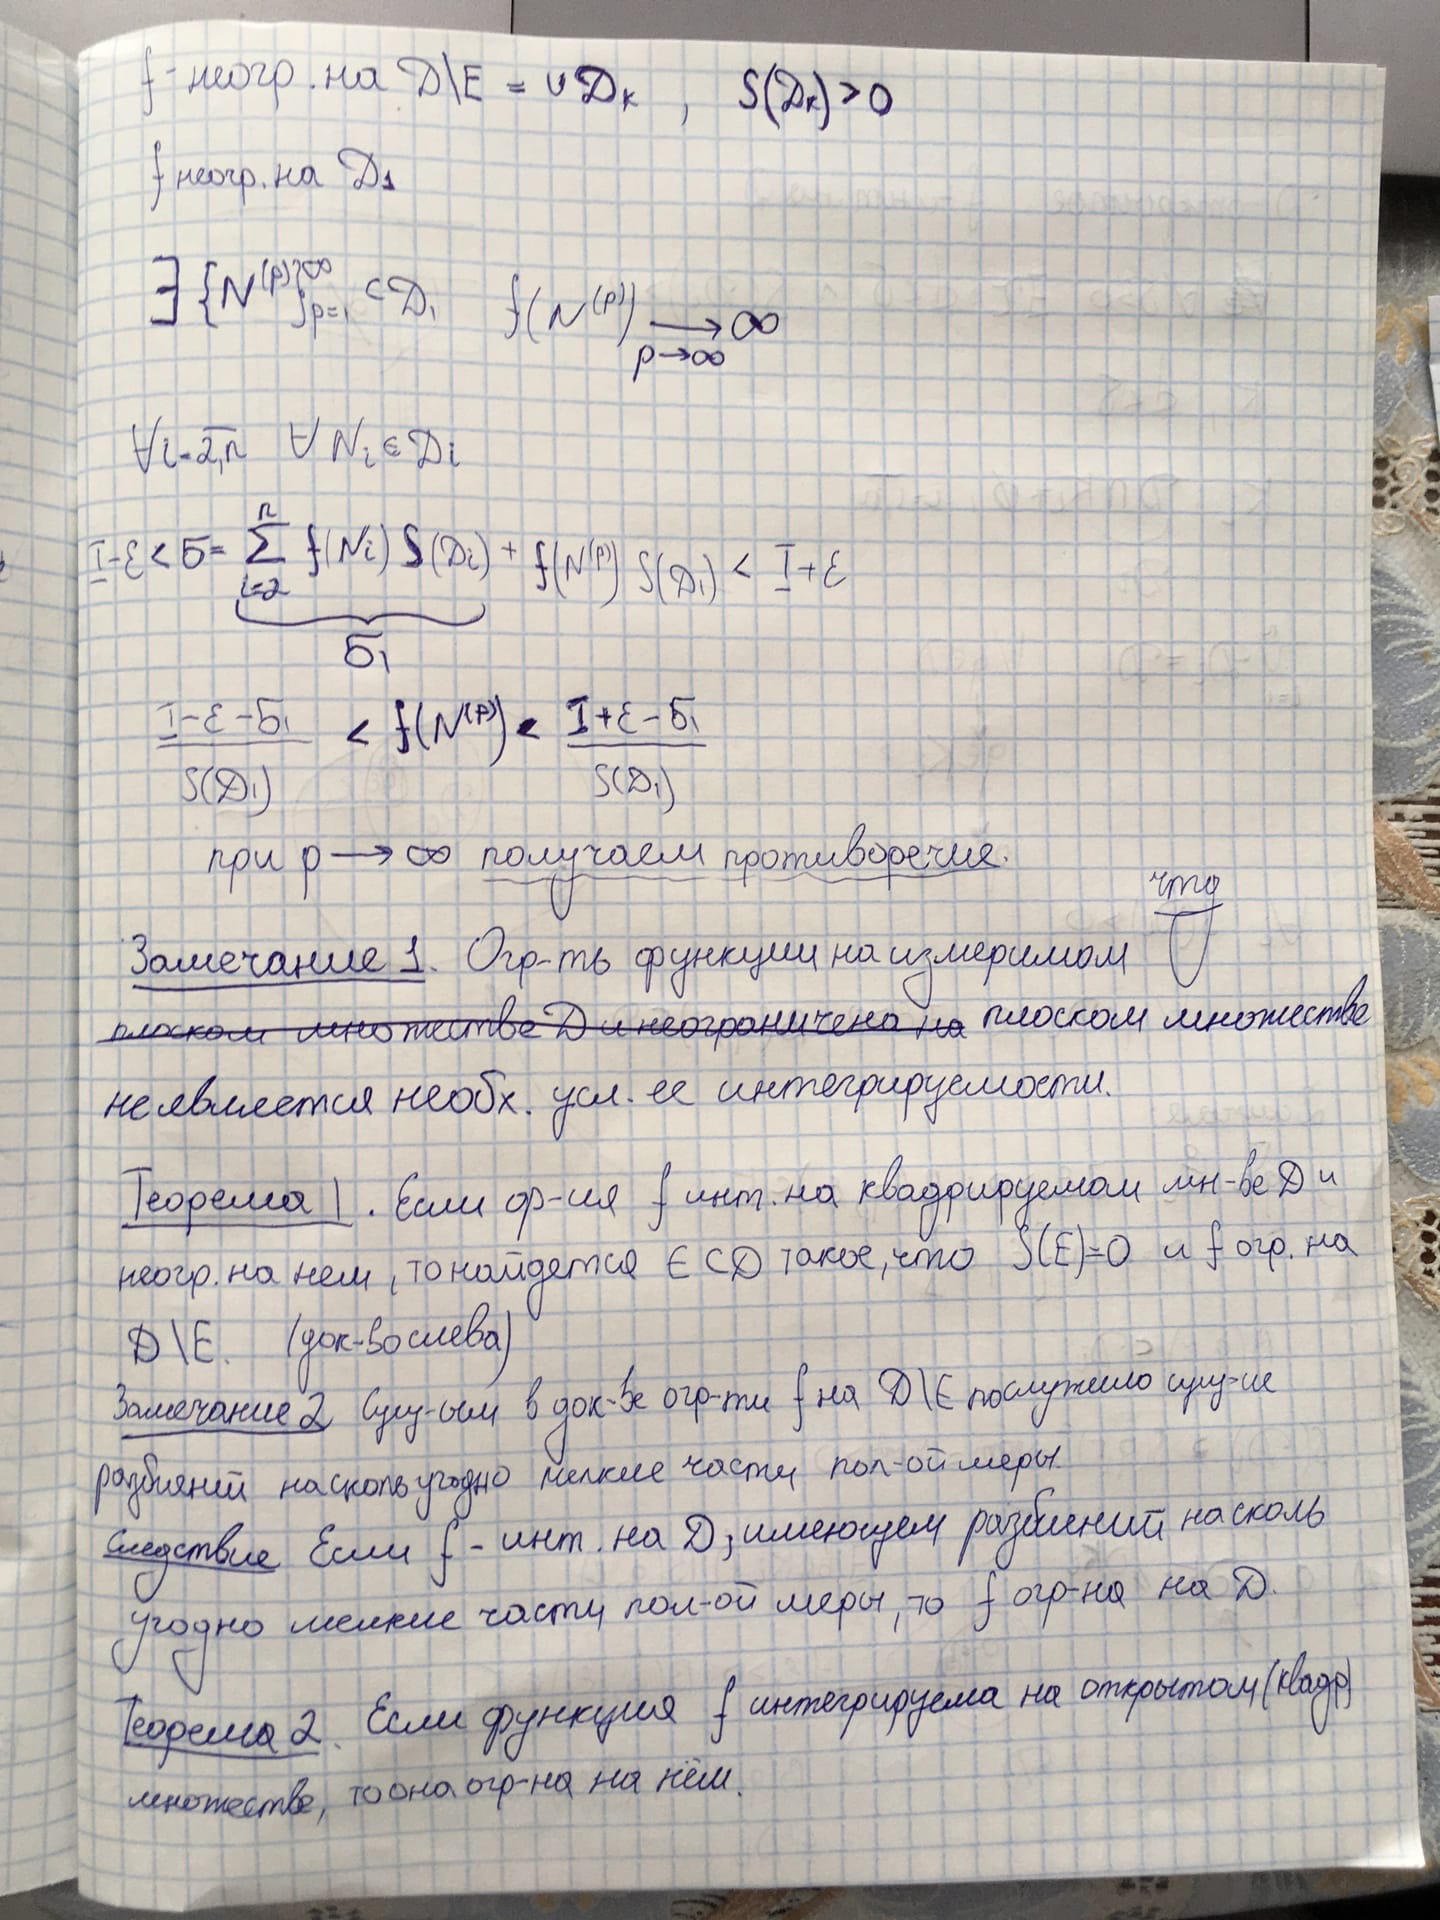 f - неогр. на D\E = ∪ D_k , S(D_k) > 0
f неогр. на D_1
∃ {N^(p)}_{p=1}^∞ ⊂ D_1 f(N^(p)) ⟶_{p→∞} ∞
∀i=2,n ∀ N_i ∈ D_i
I-ε < σ = ∑_{i=2}^{n} f(N_i) S(D_i) + f(N^(p)) S(D_1) < I+ε
σ_1
(I-ε-σ_1)/S(D_1) < f(N^(p)) < (I+ε-σ_1)/S(D_1)
при p → ∞ получаем противоречие.
чтд
Замечание 1. Огр-ть функции на измеримом
плоском множестве D и неограничена на плоском множестве
не является необх. усл. ее интегрируемости.
Теорема 1. Если ф-ия f инт. на квадрируемом мн-ве D и
неогр. на нем, то найдется E ⊂ D такое, что S(E)=0 и f огр. на
D\E. (док-во слева)
Замечание 2 Сущ-ым в док-ве огр-ти f на D\E послужило сущ-ие
разбиений на сколь угодно мелкие части пол-ой меры.
Следствие Если f - инт. на D, имеющем разбиений на сколь
угодно мелкие части пол-ой меры, то f огр-на на D.
Теорема 2. Если функция f интегрируема на открытом (квадр)
множестве, то она огр-на на нём.